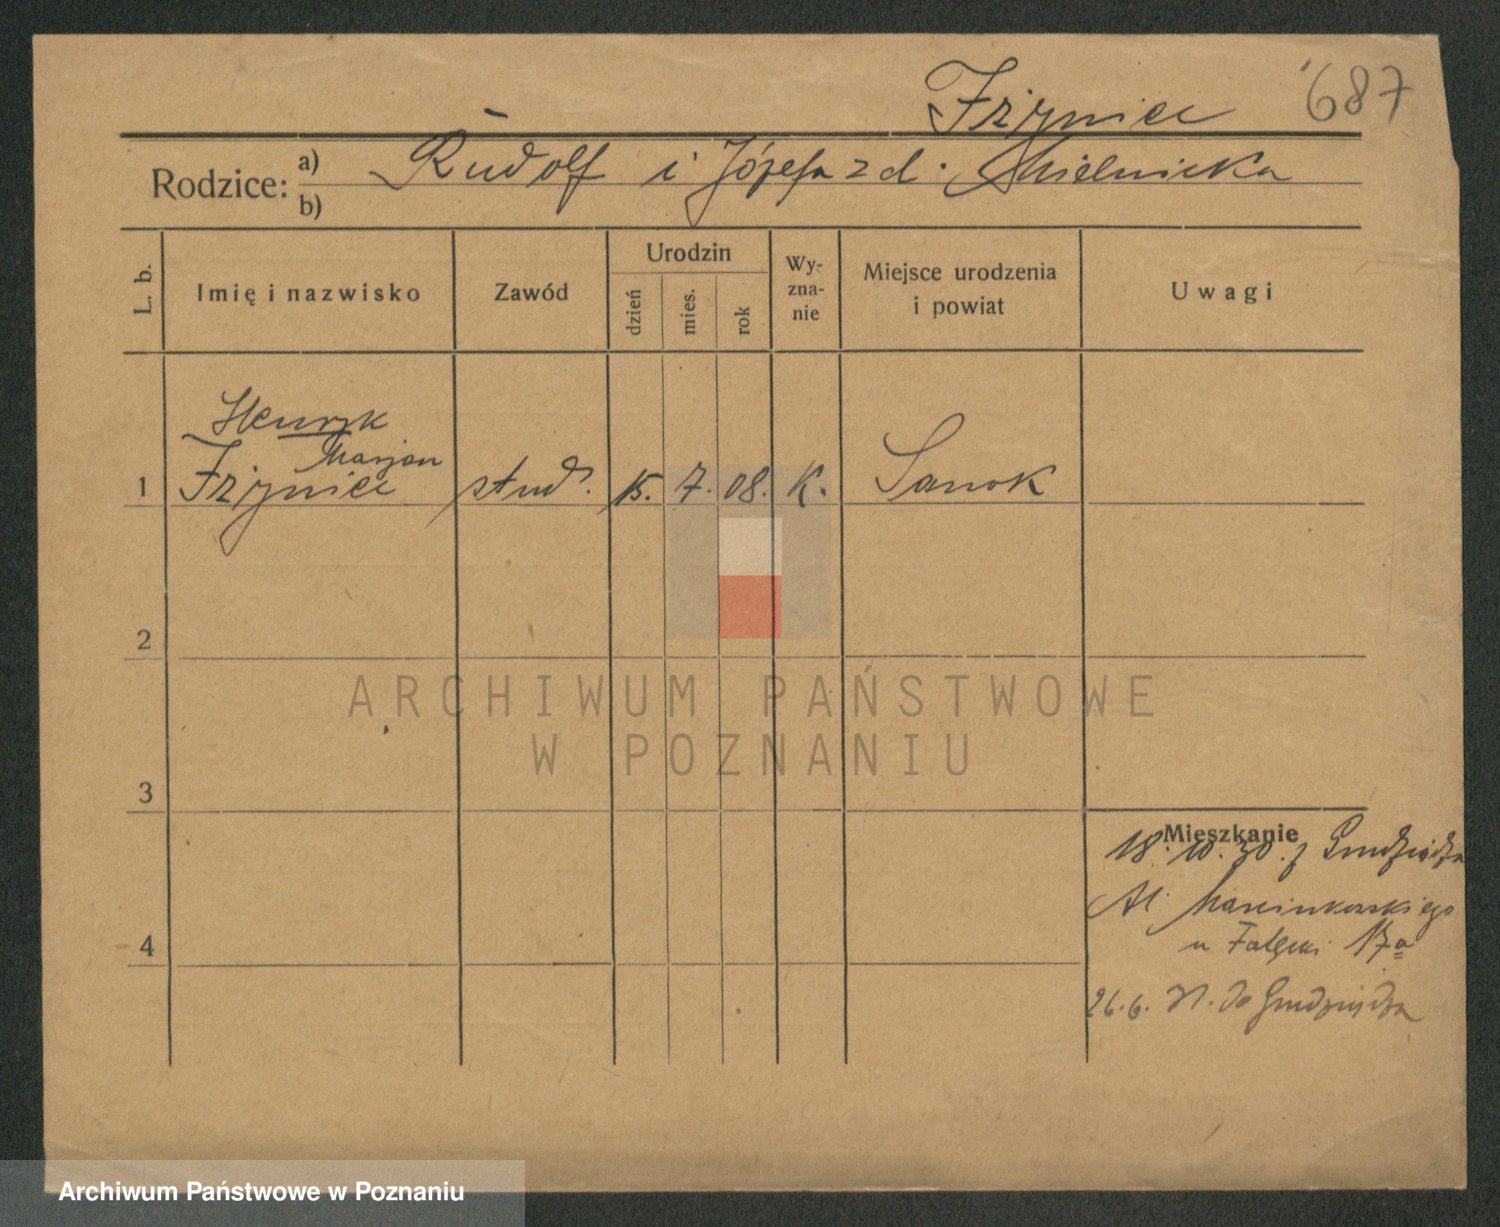 687
Rodzice: a) Rudolf i Józefa z d. Mielnicka
b)
L. b.
Imię i nazwisko
Zawód
Urodzin
dzień
mies.
rok
Wy-
zna-
nie
Miejsce urodzenia
i powiat
Uwagi
Henryk
Marjan
1 stud. 15. 7. 08. K. Sanok
2
3
4
Mieszkanie
18. 10. 30. z Grudziądza
Al. Marcinkowskiego
u 17a
26. 6. 31. do Grudziądza
ARCHIWUM PAŃSTWOWE
W POZNANIU
Archiwum Państwowe w Poznaniu